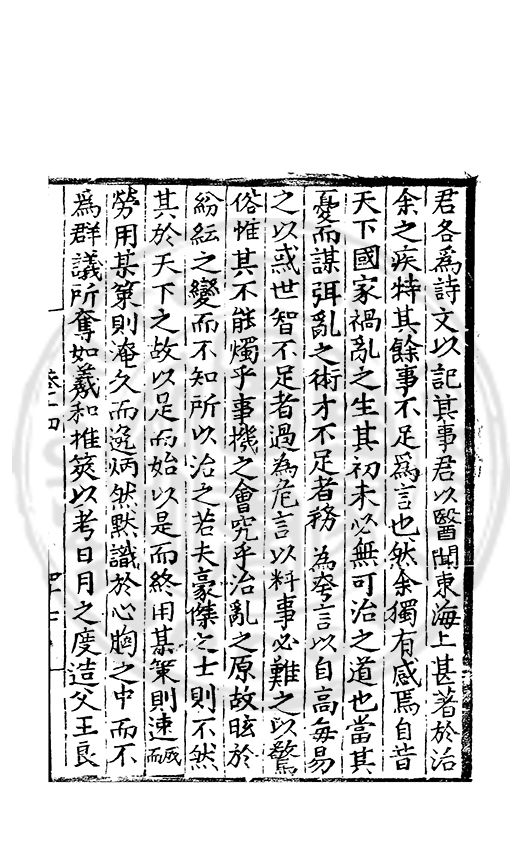 君各爲詩文以記其事君以醫聞東海上甚著於治
余之疾特其餘事不足爲言也然余獨有感焉自昔
天下國家禍亂之生其初未必無可治之道也當其
憂而謀弭亂之術才不足者務為夸言以自高每易
之以惑世智不足者過為危言以料事必難之以驚
俗惟其不能燭乎事機之會究乎治亂之原故眩於
紛紜之變而不知所以治之若夫豪傑之士則不然
其於天下之故以是而始以是而終用某策則速而
勞用某策則淹久而逸炳然默識於心胸之中而不
爲群議所奪如羲和推筴以考日月之度造父王良